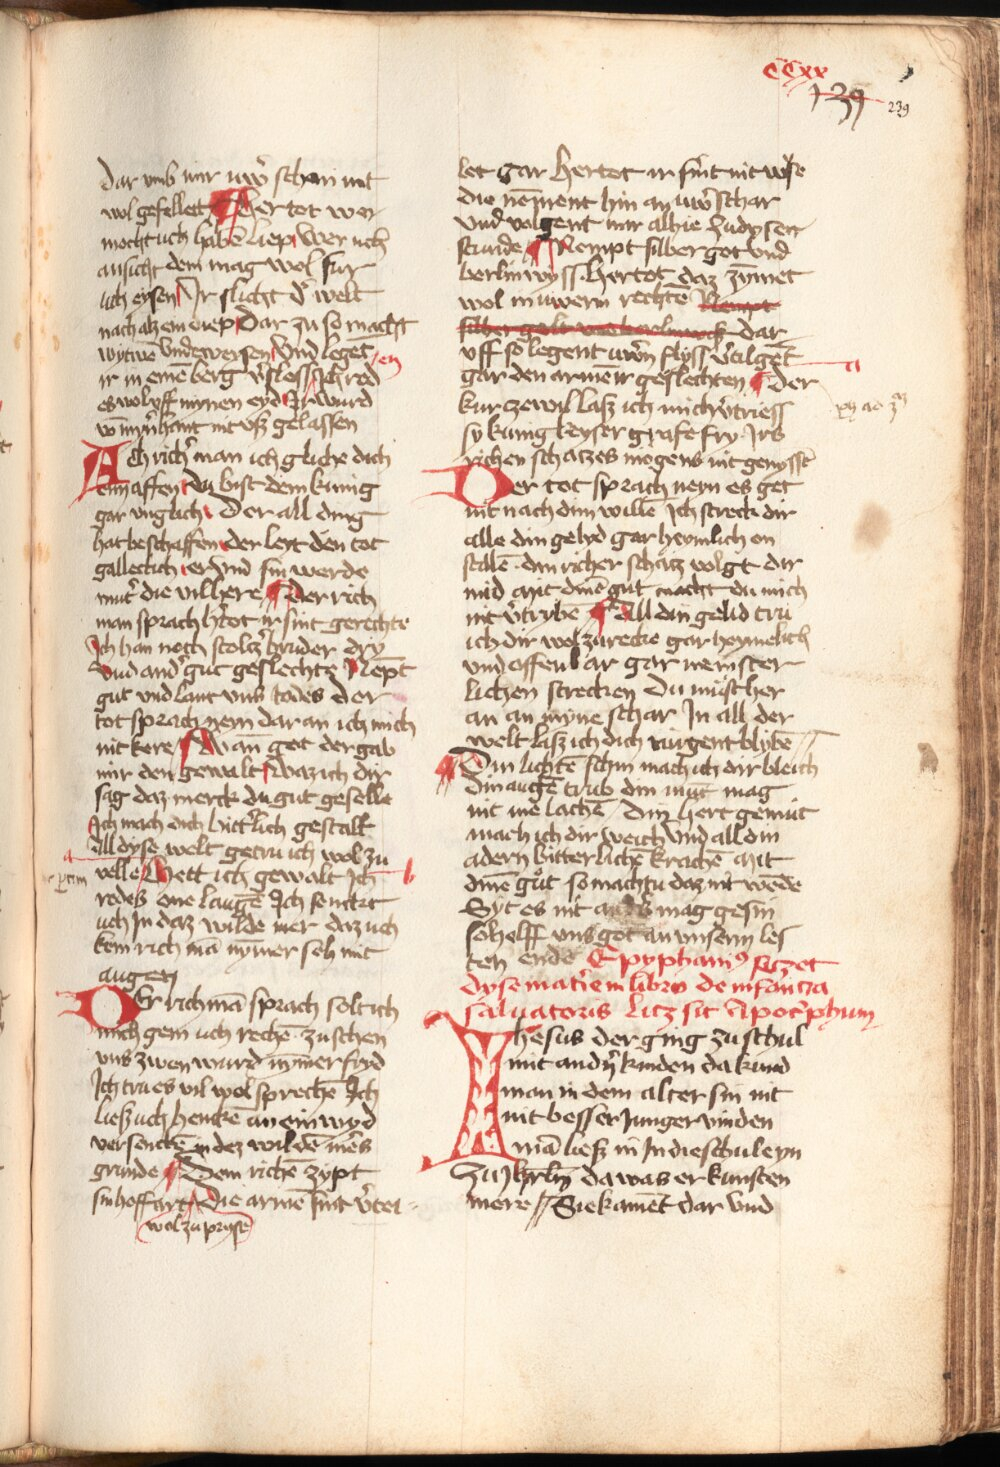 CCxx
139
239
dar vmb mir uwr̃ schon nit
wol gefellet ¶ Her tot wer
mocht uch habẽ liep Wer uch
ansicht dem mag wol fur
uch eysen Ir slicht dr̃ welt
nach alz ein diep Dar zu so macht
wytwẽ vnd weysen Vnd leget
ir in einẽ berg vr̃slossen Ich red
es wol vff mynen eyd Ir wurd
vō mynr̃ hant nit vsz gelassen
Ach richr̃ man ich gliche dich
einn affen du bist dem kunig
gar vnglich Der all ding
hat beschaffen der leyt den tot
gallecuch er vnd sin werde
mutr̃ die vil here ¶ Der rich
man sprach hr̃ tot ir sint gerechte
Ich han noch stoltzr̃ bruder dry
Vnd andr̃ gut geslechtz Nēpt
gut vnd lant vnß todes der
tot sprach neyn dar an ich mich
nit kere ¶ Wan̄ got der gab
mir den gewalt Waz ich dir
sag daz merck du gut geselle
Ich mach dich bitterlich gestalt
All dyse welt getru ich wol zu
velle Hett ich gewalt Ich
redes one laugē Ich senckt
uch In daz wilde mer daz uch
kein rich mā nȳmer seh mit
augen
Der rich mā sprach solt ich
mich gein uch rechē zuschen
vns zwen wurd nȳmer fryd
Ich tru es vil wol sprechē Ich
liesz uch henckē an ein wyd
versenckē in dez wildē mers
grunde ¶ Dem richē zȳpt
sin hoffart Die armē sint vr̃tei
wol zu pryse
let gar Her tot ir sint nit wyse
die nēment hin an uwr̃ schar
vnd volgent mir alhie zu dysen
stunde ¶ Nempt silber got vnd
berlin wyss Her tot daz zȳmet
wol in uwern rechtē Nempt
silber golt vnd berlin wyß dar
vff so legent uwr̃n flyss vr̃tilget
gar den armē ir geslechten ¶ Der
kurczewyl lasz ich mich vr̃driess
sy kunig keyser grafe fry Irs
richen schatzes mogens nit genyssē
Der tot sprach neyn es get
nit nach dim willē Ich streck dir
alle din gelyd gar heymlich en
stillē din richer schatz volgt dir
nid mit dinē gut macht du mich
nit vr̃trybē ¶ All din gelid tru
ich dir wol zu recke gar heymelich
vnd offenbar gar nemster
lichen strecken Du must her
an an myne schar In all der
welt lasz ich dich nirgent blybē
Din lichtē schin mach ich dir bleich
din augē trub din mut mag
nit me lachē Din hert gemut
mach ich dir weich Vnd all din
adern bitterliche krachē mit
dinē gut so machtu daz nit wēde
Syt es nit anders mag gesin
so helff vns got an vnserm les
ten ende Epyphaniꝰ seczet
dyse materiē in libro de infancia
saluatoris licz sit Apocr̃phum
Ihesus der ging zu schul
mit andr̃n kinden da kund
man in dem alter sin nit
nit besser Junger vinden
mā liesz in̄ In die schul eyn
zu Jhrl̄m da was er kunsten
mere // Sie kamēt dar vnd